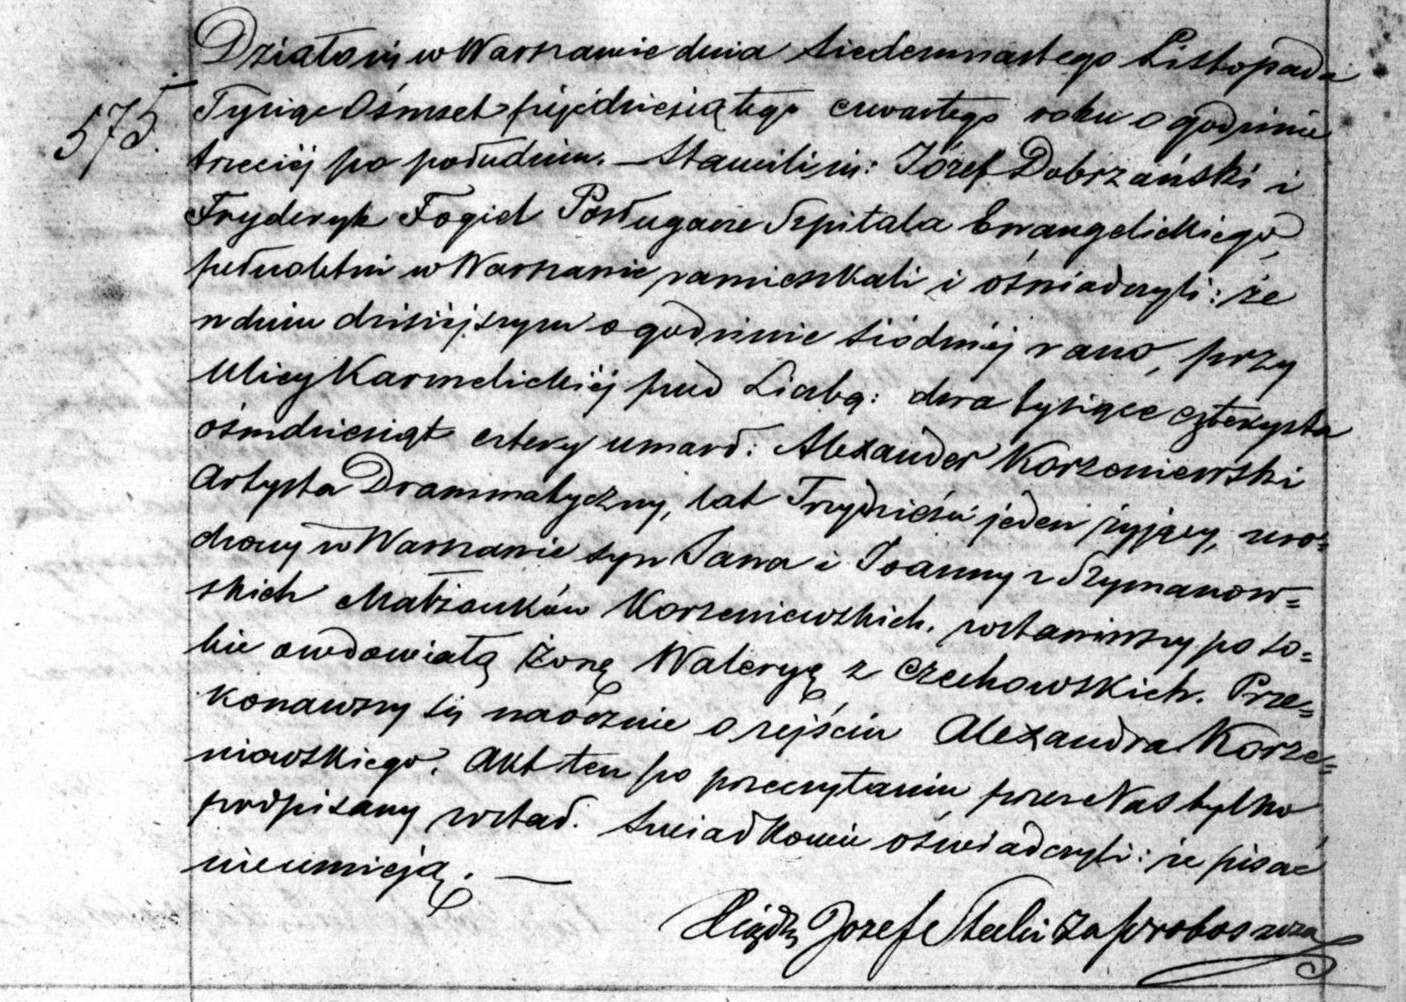 575.
Działo się w Warszawie dnia siedemnastego Listopada
Tysiąc Ośmset pięćdziesiątego czwartego roku o godzinie
trzeciéj po południu. – Stawili się: Józef Dobrzański i
Fryderyk Fogiel Posługacze Szpitala Ewangelickiego,
pełnoletni w Warszawie zamieszkali i oświadczyli: że
w dniu dzisiejszym o godzinie siódméj rano, przy
Ulicy Karmelickiéj pod Liczbą: dwa tysiące czterysta
ośmdziesiąt cztery umarł: Alexander Korzeniewski
Artysta Drammatyczny, lat Trzydzieści jeden żyjący, uro=
dzony w Warszawie syn Jana i Joanny z Szymanow=
skich Małżonków Korzeniewskich. zostawiwszy po so=
bie owdowiałą Żonę Waleryę z Czechowskich. Prze=
konawszy się naocznie o zejściu Alexandra Korze=
niewskiego. Akt ten po przeczytaniu przez Nas tylko
podpisany został. Świadkowie oświadczyli: że pisać
nieumieją. —
Xiądz Jozef Steclu za proboszcza